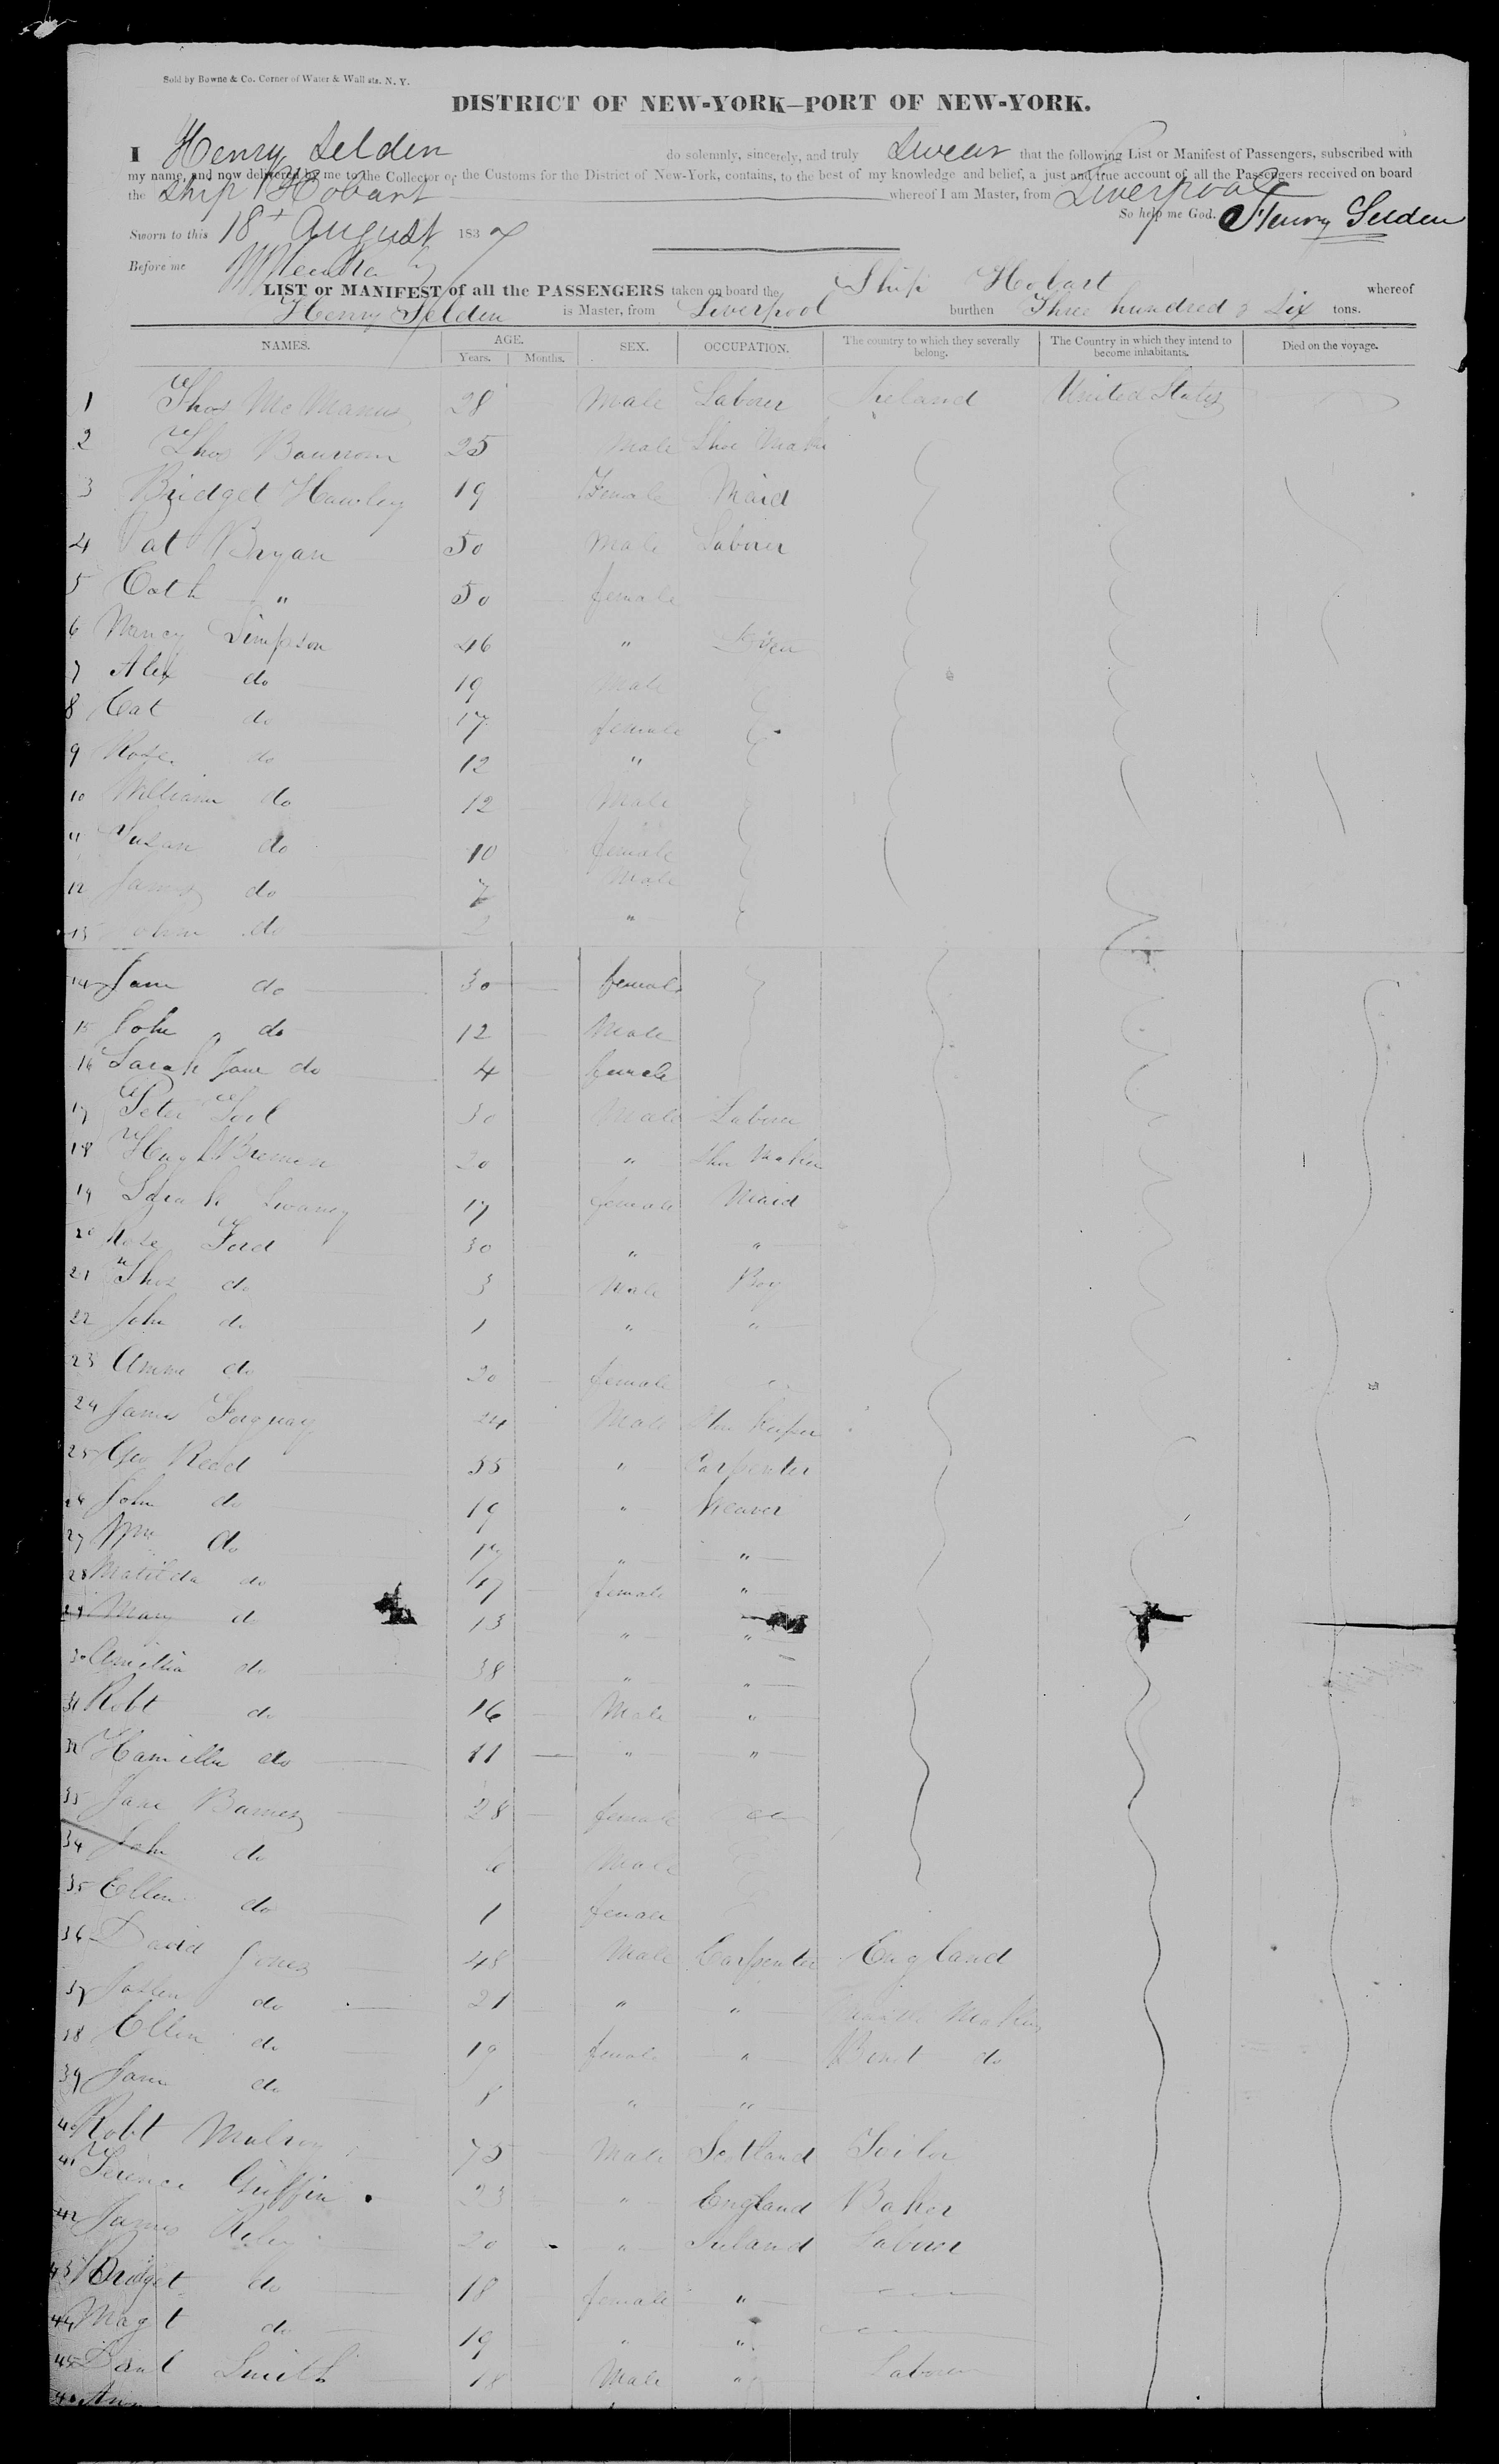 Sold by Bowne & Co. Corner of Water & Wall sts. N. Y.
DISTRICT OF NEW-YORK—PORT OF NEW-YORK.
I Henry Selden do solemnly, sincerely, and truly Swear that the following List or Manifest of Passengers, subscribed with
my name, and now delivered by me to the Collector of the Customs for the District of New-York, contains, to the best of my knowledge and belief, a just and true account of all the Passengers received on board
the Ship Hobart whereof I am Master, from Liverpool
So help me God. Henry Selden
Sworn to this 18t August 1837
Before me
LIST or MANIFEST of all the PASSENGERS taken on board the Ship Hobart whereof
Henry Selden is Master, from Liverpool burthen Three hundred & Six tons.
NAMES. AGE. Years. Months. SEX. OCCUPATION. The country to which they severally belong. The Country in which they intend to become inhabitants. Died on the voyage.
1 Thos McManus 28 Male Laborer Ireland United States
2 Thos 25 Male Shoe Maker
3 Bridget Hawley 19 Female Maid
4 Pat Bryan 50 Male Laborer
5 Cath " 50 female
6 Nancy Simpson 46 "
7 Alex do 19 Male
8 Cat do 17 female
9 Rose do 12 "
10 William do 12 Male
11 Susan do 10 female
12 James do 7 Male
13 John do 2 "
14 Jane do 30 female
15 John do 12 Male
16 Sarah Jane do 4 female
17 Peter 30 Male Laborer
18 Hugh 20 " Shoe Maker
19 Sarah Swaney 17 female Maid
20 Rose Ford 30 " "
21 Thos do 3 Male Boy
22 John do 1 " "
23 Anne do 20 female "
24 James 24 Male
25 Geo Reed 55 " Carpenter
26 John do 19 " Weaver
27 Wm do 17 " "
28 Matilda do 17 female "
29 Mary do 13 " "
30 do 38 " "
31 Robt do 16 Male "
32 do 11 " "
33 Jane Barnes 28 female
34 John do 6 Male
35 Ellen do 1 female
36 David Jones 48 Male Carpenter England
37 do 21 " " Maker
38 Ellen do 19 female " do
39 Jane do " "
40 Robt 75 Male Scotland
41 Terence Griffin 23 " England Baker
42 James Riley 20 " Ireland Laborer
43 Bridget do 18 female "
44 Magt do 19 " "
45 Smith 18 Male " Laborer
46